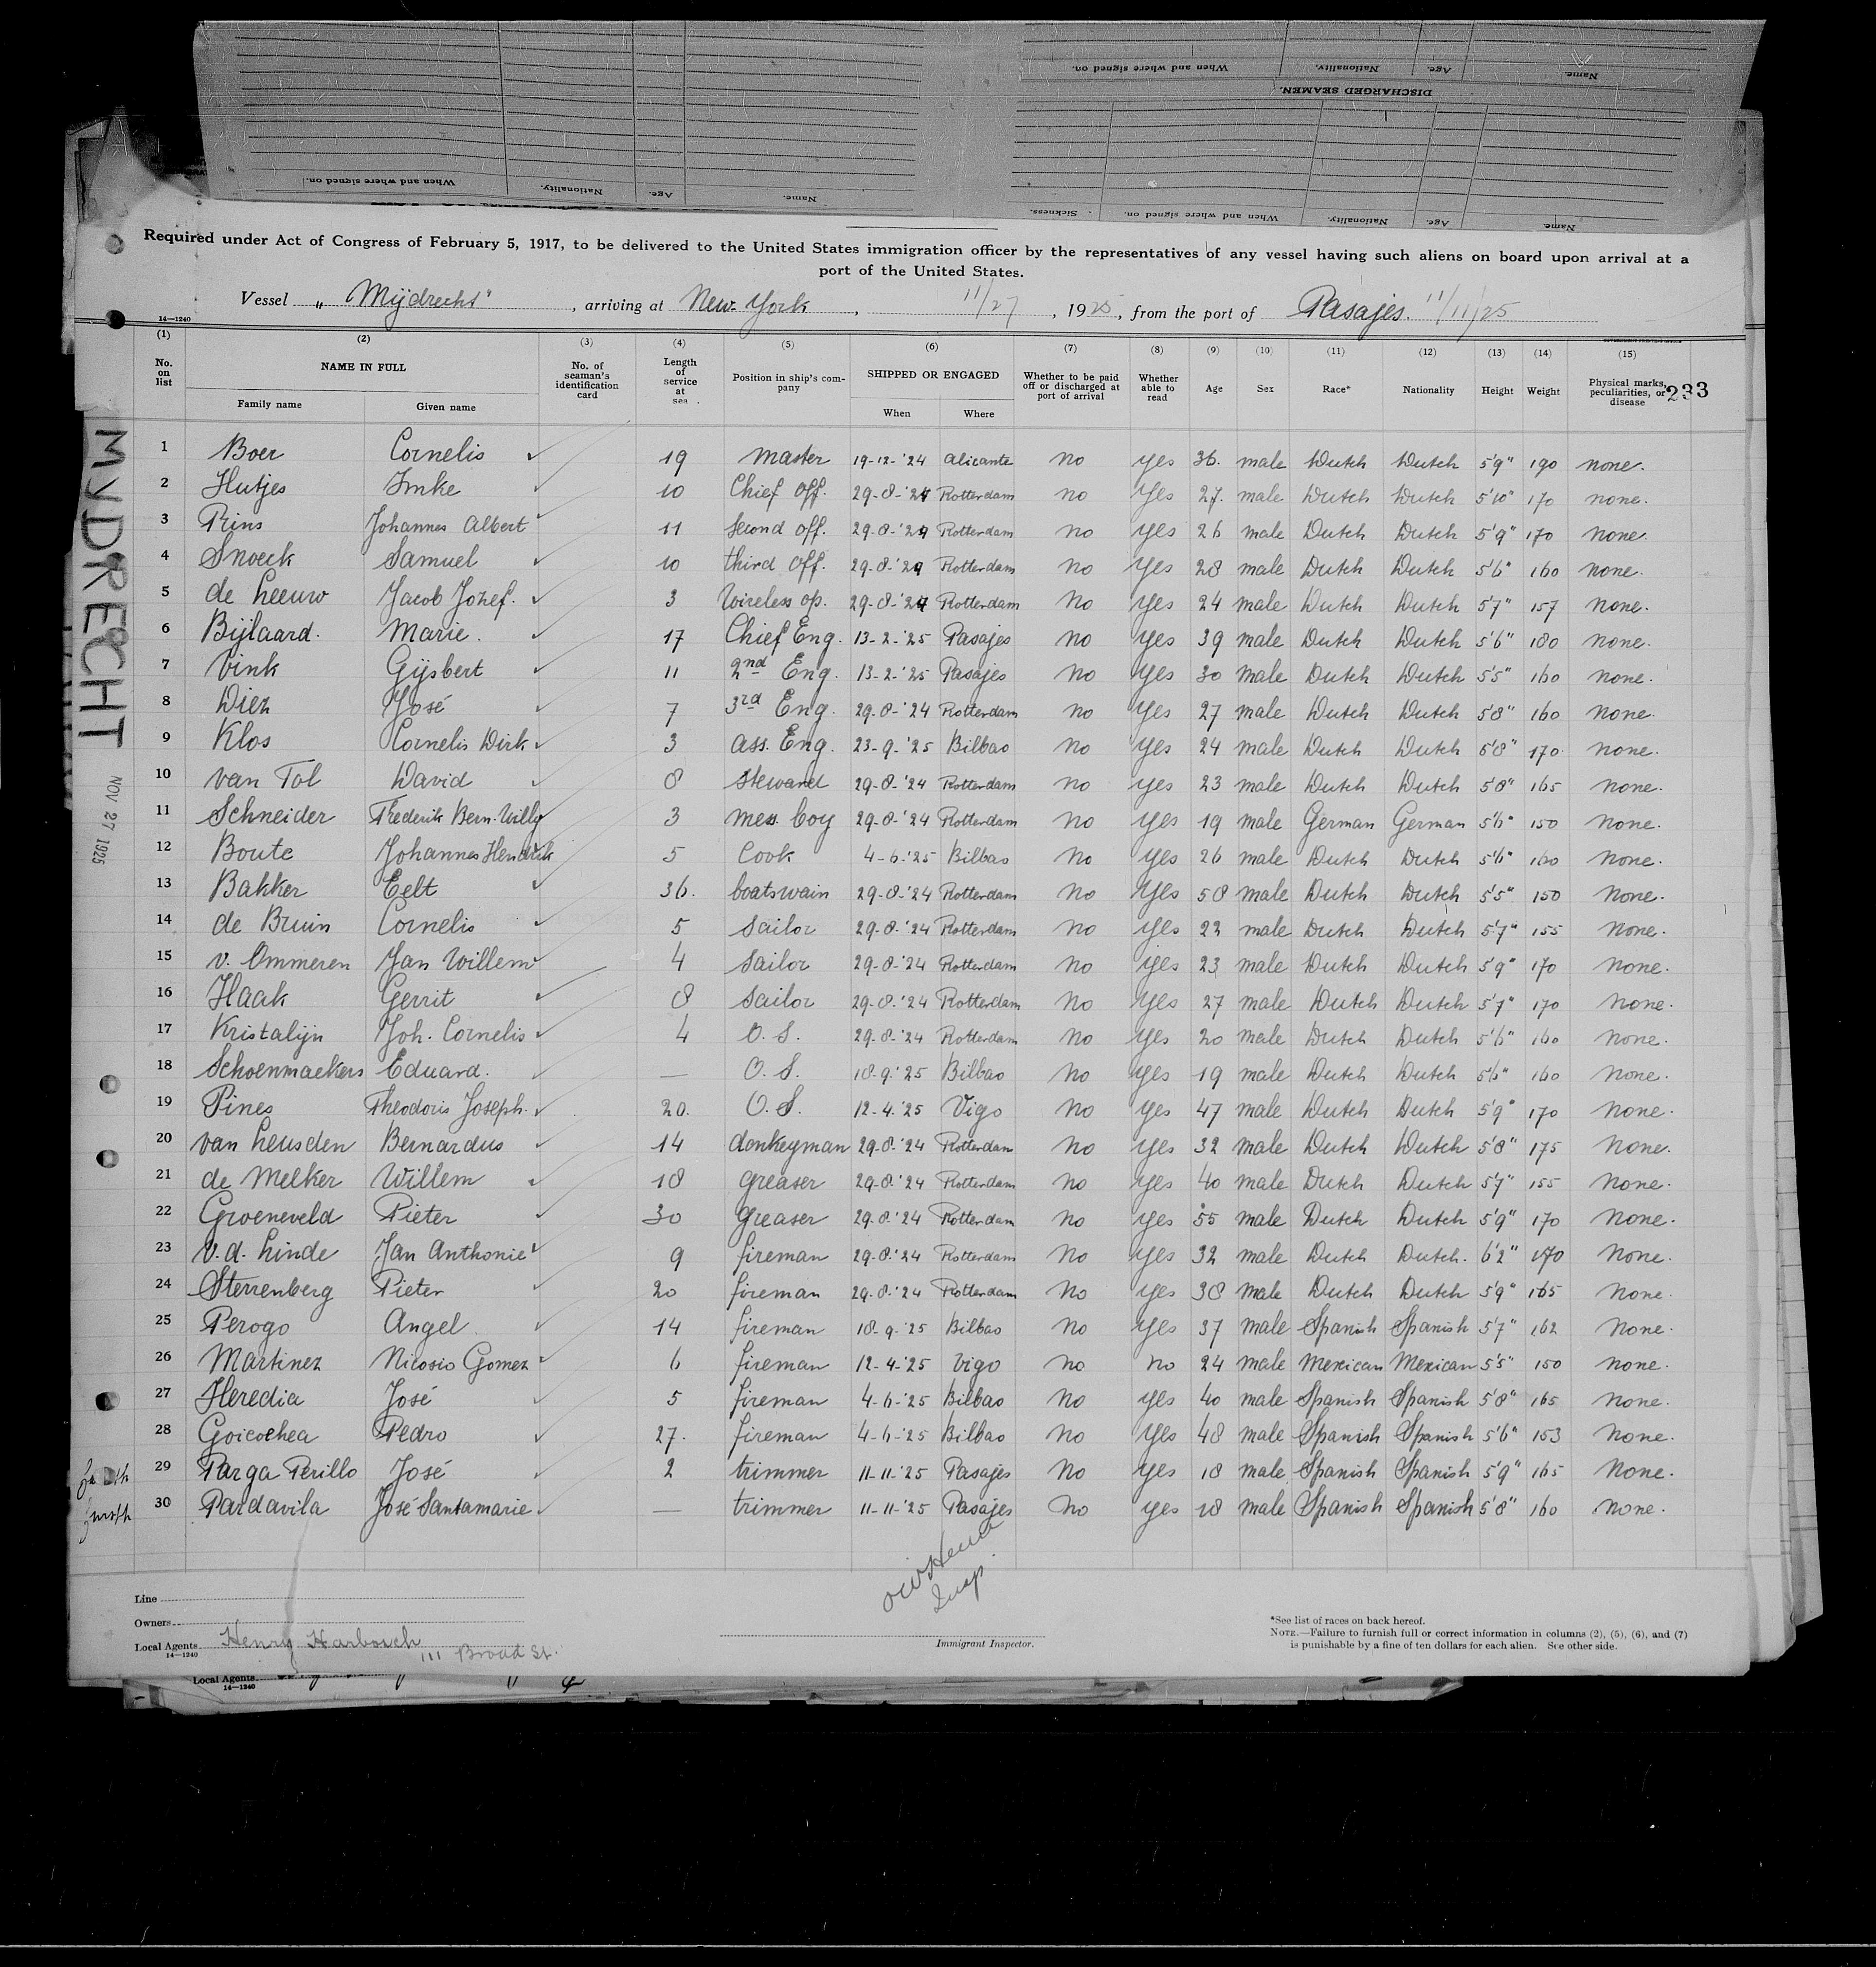 When and where signed on.
Nationality.
Age.
Name.
DISCHARGED SEAMEN.
When and where signed on.
Nationality.
Age.
Name.
Sickness.
When and where signed on.
Nationality.
Age.
Name.
Required under Act of Congress of February 5, 1917, to be delivered to the United States immigration officer by the representatives of any vessel having such aliens on board upon arrival at a
port of the United States.
Vessel „ Mijdrecht" , arriving at New-York , 11/27 , 1925, from the port of Pasajes. 11/11/25
14—1240
(1) (2) (3) (4) (5) (6) (7) (8) (9) (10) (11) (12) (13) (14) (15)
No. on list NAME IN FULL Family name Given name No. of seaman's identification card Length of service at sea Position in ship's company SHIPPED OR ENGAGED When Where Whether to be paid off or discharged at port of arrival Whether able to read Age Sex Race* Nationality Height Weight Physical marks, peculiarities, or disease
233
1 Boer Cornelis 19 master 19-12-'24 Alicante no yes 36. male Dutch Dutch 5'9" 190 none.
2 Hutjes Imke 10 Chief off. 29-8-'24 Rotterdam no yes 27. male Dutch Dutch 5'10" 170 none.
3 Prins Johannes Albert 11 second off. 29-8-'24 Rotterdam no yes 26 male Dutch Dutch 5'9" 170 none.
4 Snoeck Samuel 10 third off. 29-8-'24 Rotterdam no yes 28 male Dutch Dutch 5'6" 160 none.
5 de Leeuw Jacob Jozef. 3 Wireless op. 29-8-'24 Rotterdam no yes 24 male Dutch Dutch 5'7" 157 none.
6 Bijlaard. Marie. 17 Chief Eng. 13-2-'25 Pasajes no yes 39 male Dutch Dutch 5'6" 180 none.
7 Vink Gijsbert 11 2nd Eng. 13-2-'25 Pasajes no yes 30 male Dutch Dutch 5'5" 160 none.
8 Diez José 7 3rd Eng. 29-8-'24 Rotterdam no yes 27 male Dutch Dutch 5'8" 160 none.
9 Klos Cornelis Dirk 3 ass. Eng. 23-9-'25 Bilbao no yes 24 male Dutch Dutch 5'8" 170. none.
10 van Tol David 8 steward 29-8-'24 Rotterdam no yes 23 male Dutch Dutch 5'8" 165 none.
11 Schneider Frederik Bern. Willy 3 mess boy 29-8-'24 Rotterdam no yes 19 male German German 5'6" 150 none.
12 Boute Johannes Hendrik 5 Cook 4-6-'25 Bilbao no yes 26 male Dutch Dutch 5'6" 160 none.
13 Bakker Eelt 36. boatswain 29-8-'24 Rotterdam no yes 58 male Dutch Dutch 5'5" 150 none.
14 de Bruin Cornelis 5 sailor 29-8-'24 Rotterdam no yes 22 male Dutch Dutch 5'7" 155 none.
15 v. Ommeren Jan Willem 4 sailor 29-8-'24 Rotterdam no yes 23 male Dutch Dutch 5'9" 170 none.
16 Haak Gerrit 8 sailor 29-8-'24 Rotterdam no yes 27 male Dutch Dutch 5'7" 170 none.
17 Kristalijn Joh. Cornelis 4 O. S. 29-8-'24 Rotterdam no yes 20 male Dutch Dutch 5'6" 160 none.
18 Schoenmaekers Eduard. — O. S. 18-9-'25 Bilbao no yes 19 male Dutch Dutch 5'6" 160 none.
19 Pines Theodoris Joseph. 20. O. S. 12-4-'25 Vigo no yes 47 male Dutch Dutch 5'9" 170 none.
20 van Leusden Bernardus 14 donkeyman 29-8-'24 Rotterdam no yes 32 male Dutch Dutch 5'8" 175 none.
21 de Melker Willem 18 greaser 29-8-'24 Rotterdam no yes 40 male Dutch Dutch 5'7" 155 none.
22 Groeneveld Pieter 30 greaser 29-8-'24 Rotterdam no yes 55 male Dutch Dutch 5'9" 170 none.
23 v.d. Linde Jan Anthonie 9 fireman 29-8-'24 Rotterdam no yes 32 male Dutch Dutch. 6'2" 170 none.
24 Sterrenberg Pieter 20 fireman 29-8-'24 Rotterdam no yes 38 male Dutch Dutch 5'9" 165 none.
25 Perogo Angel 14 fireman 18-9-'25 Bilbao no yes 37 male Spanish Spanish 5'7" 162 none.
26 Martinez Nicosio Gomez 6 fireman 12-4-'25 Vigo no no 24 male Mexican Mexican 5'5" 150 none.
27 Heredia José 5 fireman 4-6-'25 Bilbao no yes 40 male Spanish Spanish 5'8" 165 none.
28 Goicochea Pedro 27. fireman 4-6-'25 Bilbao no yes 48 male Spanish Spanish 5'6" 153 none.
29 Parga Perillo José 2 trimmer 11-11-'25 Pasajes no yes 18 male Spanish Spanish 5'9" 165 none.
30 Pardavila José Santamarie — trimmer 11-11-'25 Pasajes no yes 18 male Spanish Spanish 5'8" 160 none.
MYDRECHT
NOV 27 1925
Insp.
Immigrant Inspector.
Line
Owners
Local Agents Henry Harbouch 111 Broad St.
14—1240
*See list of races on back hereof.
NOTE.—Failure to furnish full or correct information in columns (2), (5), (6), and (7)
is punishable by a fine of ten dollars for each alien. See other side.
Local Agents
14—1240